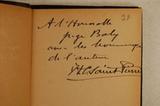 A l'Honorable
juge Baby
avec les hommages
de l'auteur
T. C. Saint-Pierre